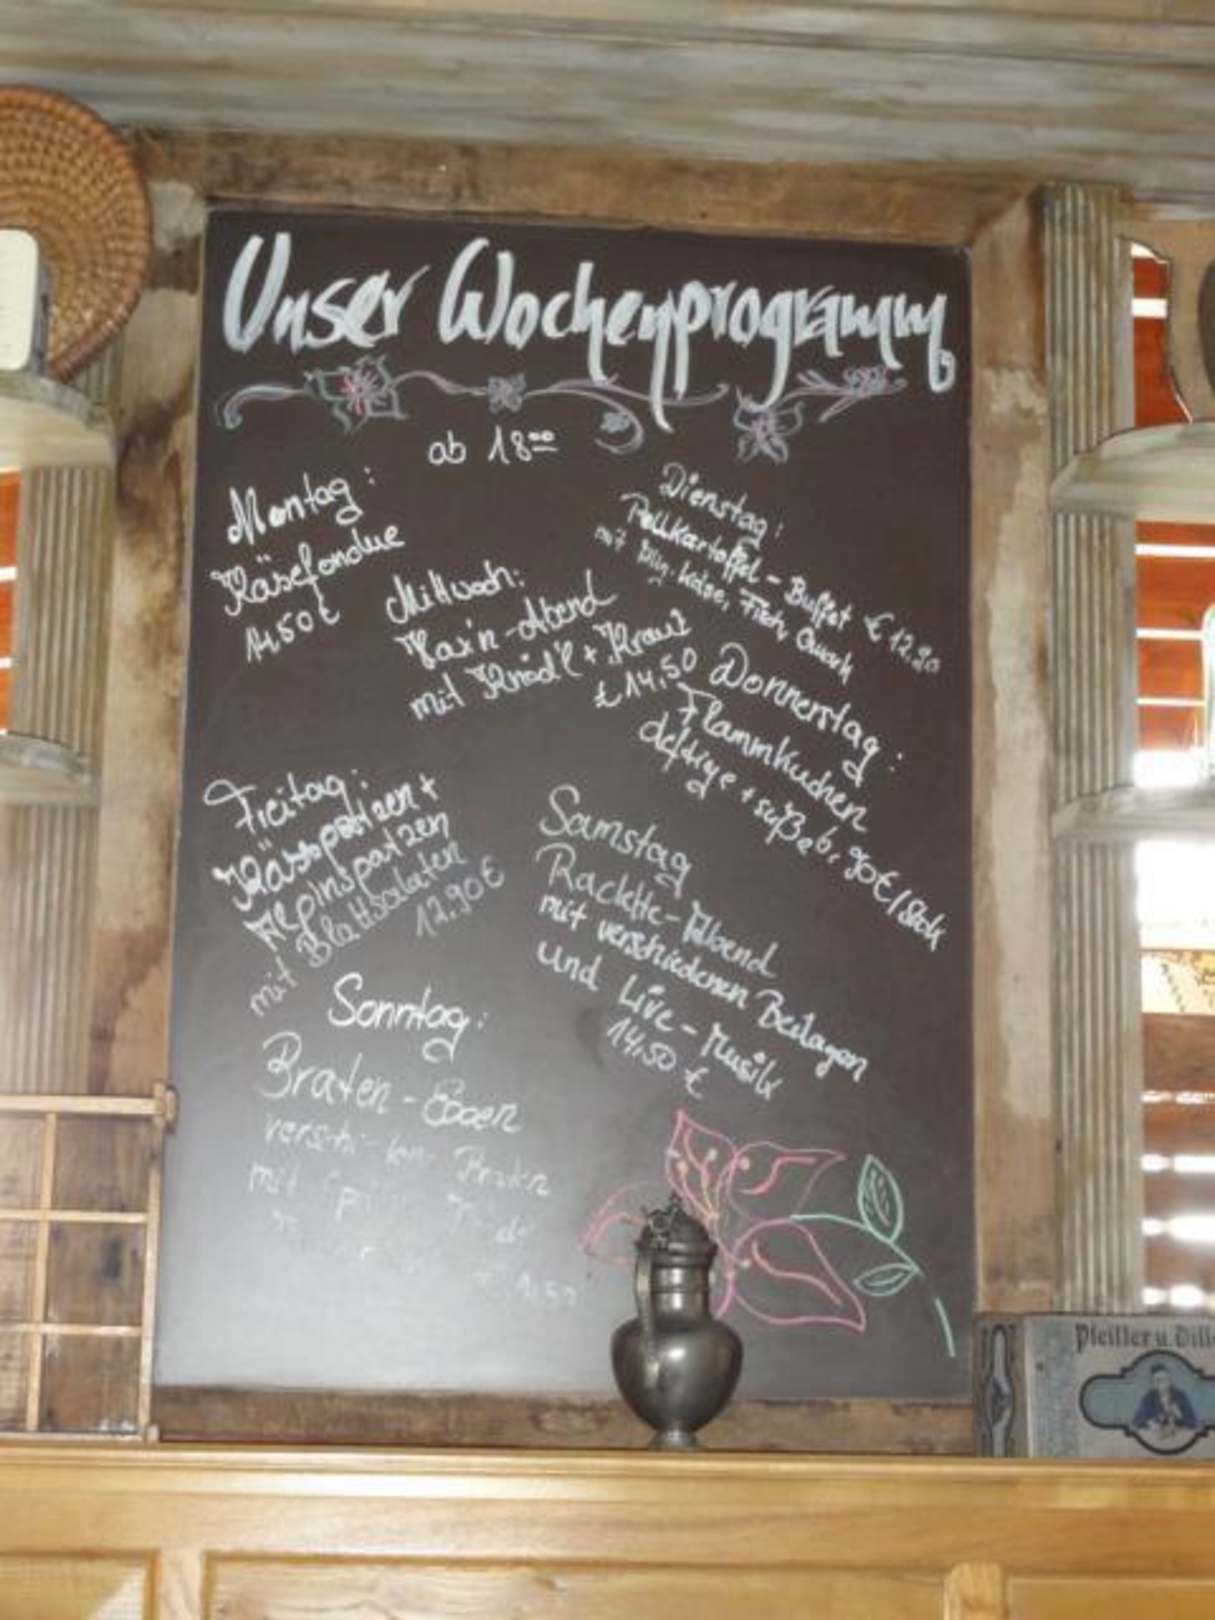 Unser Wochenprogramm
ab 18⁰⁰
Montag:
Käsefondue
14,50 €
Dienstag:
Pellkartoffel-Buffet € 12,90
mit Käse, Fisch, Quark
Mittwoch:
Hax'n-Abend
mit Knöd'l + Kraut
€ 14,50
Donnerstag:
Flammkuchen
deftige + süße 6,90 € / Stck
Freitag:
Kässpatzen +
Alpinspatzen
mit Blattsalaten
12,90 €
Samstag
Raclette-Abend
mit verschiedenen Beilagen
und Live-Musik
14,50 €
Sonntag:
Braten-Essen
Braten
mit
Pfeiffer u. Dill